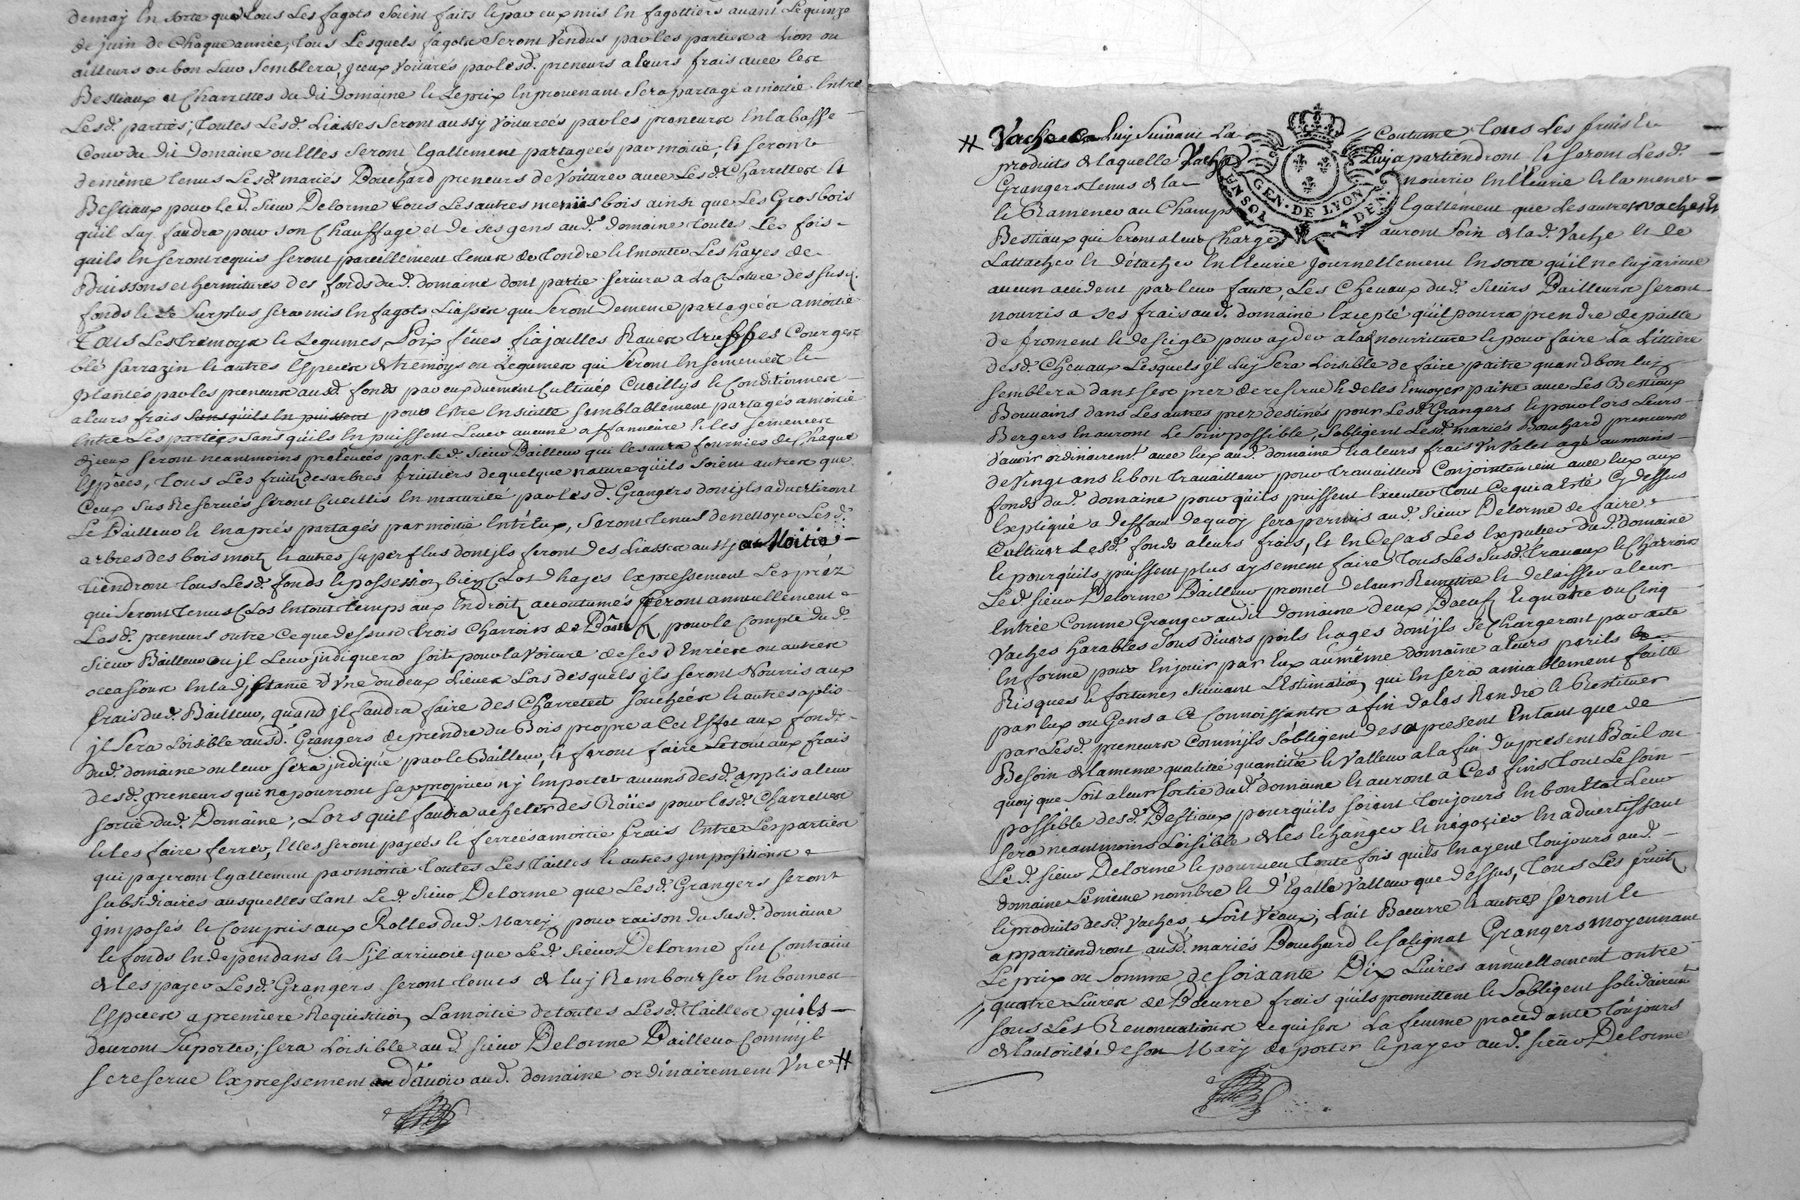 demaj en sorte que tous Les fagots soient faits le par eux mis en fagottiers avant Le quinze
de juin de Chaque année, tous Lesquels fagots seront vendus par les parties a Lion ou
ailleurs ou bon Leur semblera, jceux voiturés par lesd. preneurs a leurs frais avec les
Bestiaux et Charrettes du dit Domaine le Le prix en provenant sera partagé a moitié entre
Lesd. parties; toutes Lesd. Liasses seront aussÿ voiturées par les preneurs en la basse
Cour du dit Domaine ou Elles seront Egallement partagées par moitié, le seront
de même tenus Lesd. mariés Bouchard preneurs de voiturer avec Lesd. Charrettes et
Bestiaux pour led. sieur Delorme tous Les autres menus bois ainsi que Les Gros bois
quil Luy faudra pour son Chauffage et de ses gens aud. domaine toutes Les fois
quils en seront requis seront pareillement tenus de tondre et monter Les hayes de
Buissons et hermitures des fonds dud. domaine dont partie servira a La Cloture des susd.
fonds le Le surplus sera mis en fagots Liasses qui seront de meme partagés a moitié
Tous Les tremoys le Legumes, Poix féves fiajolles Raves truffes Courges
blé sarrazin le autres Especes de trémoys ou Legumes qui seront ensemencés le
plantés par les preneurs aud. fonds par eux duement Cultivés Cueillÿs le Conditionnés
a leurs frais sans qu'ils en puissent pour Estre ensuitte semblablement partagés a moitié
Entre Les parties sans quils en puissent Lever aucune affanure le les semences
djceux seront neantmoins prelevées par led. sieur Bailleur qui les aura fournies de Chaque
Especes, tous Les fruits des arbres fruitiers de quelque nature qu'ils soient autres que
Ceux sus Reservés seront Cueillis en maturité par lesd. Grangers dont jls advertiront
Le Bailleur le en après partagés par moitié Entr'Eux, seront tenus de nettoyer Lesd.
arbres des bois morts le autres superflus dont jls feront des Liasses aussj a Moitié
tiendront tous Lesd. fonds le possession bien Clos d'hayes Expressement Les préz
qui seront tenus Clos en tout temps aux Endroits accoutumés feront annuellement
Lesd. preneurs outre ce que dessus trois Charrois de Bœufs pour le Compte dud.
sieur Bailleur ou jl Leur jndiquera soit pour la voiture de ses denrées ou autres
occasions en la distance d'Une ou deux Lieues Lors desquels jls seront Nourris aux
frais dud. Bailleur, quand jl faudra faire des Charrettes souchées le autres aplis
jl sera Loisible ausd. Grangers de prendre du Bois propre a Cet Effet aux fonds
dud. domaine ou leur sera jndiqué par le Bailleur, le feront faire Le tout aux frais
desd. preneurs qui ne pourront s'approprier nÿ Emporter aucuns desd. applis a leur
sortie dud. Domaine; Lors quil faudra achepter des Roües pour lesd. Charrettes
le les faire ferrer, Elles seront payées le ferrées a moitié frais Entre Les parties
qui payeront Egallement par moitié toutes Les tailles le autres jmpositions
subsidiaires ausquelles tant Led. sieur Delorme que Lesd. Grangers seront
jmposés le Compris aux Rolles dud. Marcy pour raison du susd. domaine
le fonds en dependans le s'jl arrivoit que Led. sieur Delorme fut Contraint
de les payer Lesd. Grangers seront tenus de luy Rembourser en bonnes
Especes a premiere Requisition La moitié de toutes Lesd. tailles quils
devront suporter; sera Loisible aud. sieur Delorme Bailleur Comme jl
se reserve Expressement d'avoir aud. domaine ordinairement Une #
# Vache a luy suivant La Coutume tous Les fruits le
produits de laquelle Vache Luy apartiendront le seront Lesd.
Grangers tenus de la nourrir en l'Ecurie le la mener
le Ramener au Champs Egallement que les autres vaches le
Bestiaux qui seront a leur Charge auront soin de lad. Vache le de
L'attacher le détacher en l'Ecurie journellement en sorte qu'il ne luy arrive
aucun accident par leur faute, Les Chevaux dud. sieur Bailleur seront
nourris a ses frais aud. domaine Excepté qu'il pourra prendre de paille
de froment le de seigle pour ayder a la nourriture le pour faire La Littiere
desd. Chevaux Lesquels jl luy sera Loisible de faire paître quand bon luy
semblera dans ses prez de reserve le de les Envoyer paitre avec Les Bestiaux
Bouvains dans Les autres prez destinés pour Lesd. Grangers le pour lors Leurs
Bergers en auront Le soin possible, s'obligent Lesd. mariés Bouchard preneurs
d'avoir ordinairemt. avec Eux aud. domaine le a leurs frais Un Valet agé au moins
de Vingt ans le bon travailleur pour travailler Conjointement avec Eux aux
fonds dud. domaine pour qu'ils puissent Executer tout Ce qui a Esté Cy dessus
Expliqué a deffaut de quoy sera permis aud. sieur Delorme de faire
Cultiver Lesd. fonds a leurs frais, le en Ce Cas Les Expulser dud. domaine
le pour qu'ils puissent plus aysement faire tous Les susd. travaux le Charrois
Led. sieur Delorme Bailleur promet de leur Remettre le delaisser a leur
Entrée Comme Grangers aud. domaine deux Bœufs le quatre ou Cinq
Vaches harables sous divers poils le ages dont jls se Chargeront par acte
en forme pour En jouir par Eux au même domaine a leurs perils
Risques le fortunes suivant L'Estimation qui en sera amiablement faitte
par Eux ou Gens a Ce Connoissants a fin de les Rendre le Restituer
par Lesd. preneurs Comme jls s'obligent des a present En tant que de
Besoin de la meme qualité quantité le valleur a la fin du present Bail ou
quoy que soit a leur sortie dud. domaine le auront a Ces fins tout Le soin
possible desd. Bestiaux pour qu'ils soient toujours en bon Etat Leur
sera neantmoins Loisible de les Echanger le négozier En advertissant
Led. sieur Delorme le pourveu toute fois qu'ils en ayent toujours aud.
domaine Le même nombre le d'Egalle Valleur que dessus, tous Les fruits
le produits desd. Vaches, soit Veaux, Lait Beurre le autres seront le
appartiendront ausd. mariés Bouchard le salignat Grangers moyennant
Le prix ou somme de soixante Dix Livres annuellement outre
quatre Livres de Beurre frais qu'ils promettent le s'obligent solidairemt.
sous Les Renonciations requises La femme procedante toujours
de l'autorité de son Mary de porter le payer aud. sieur Delorme
GEN. DE LYON